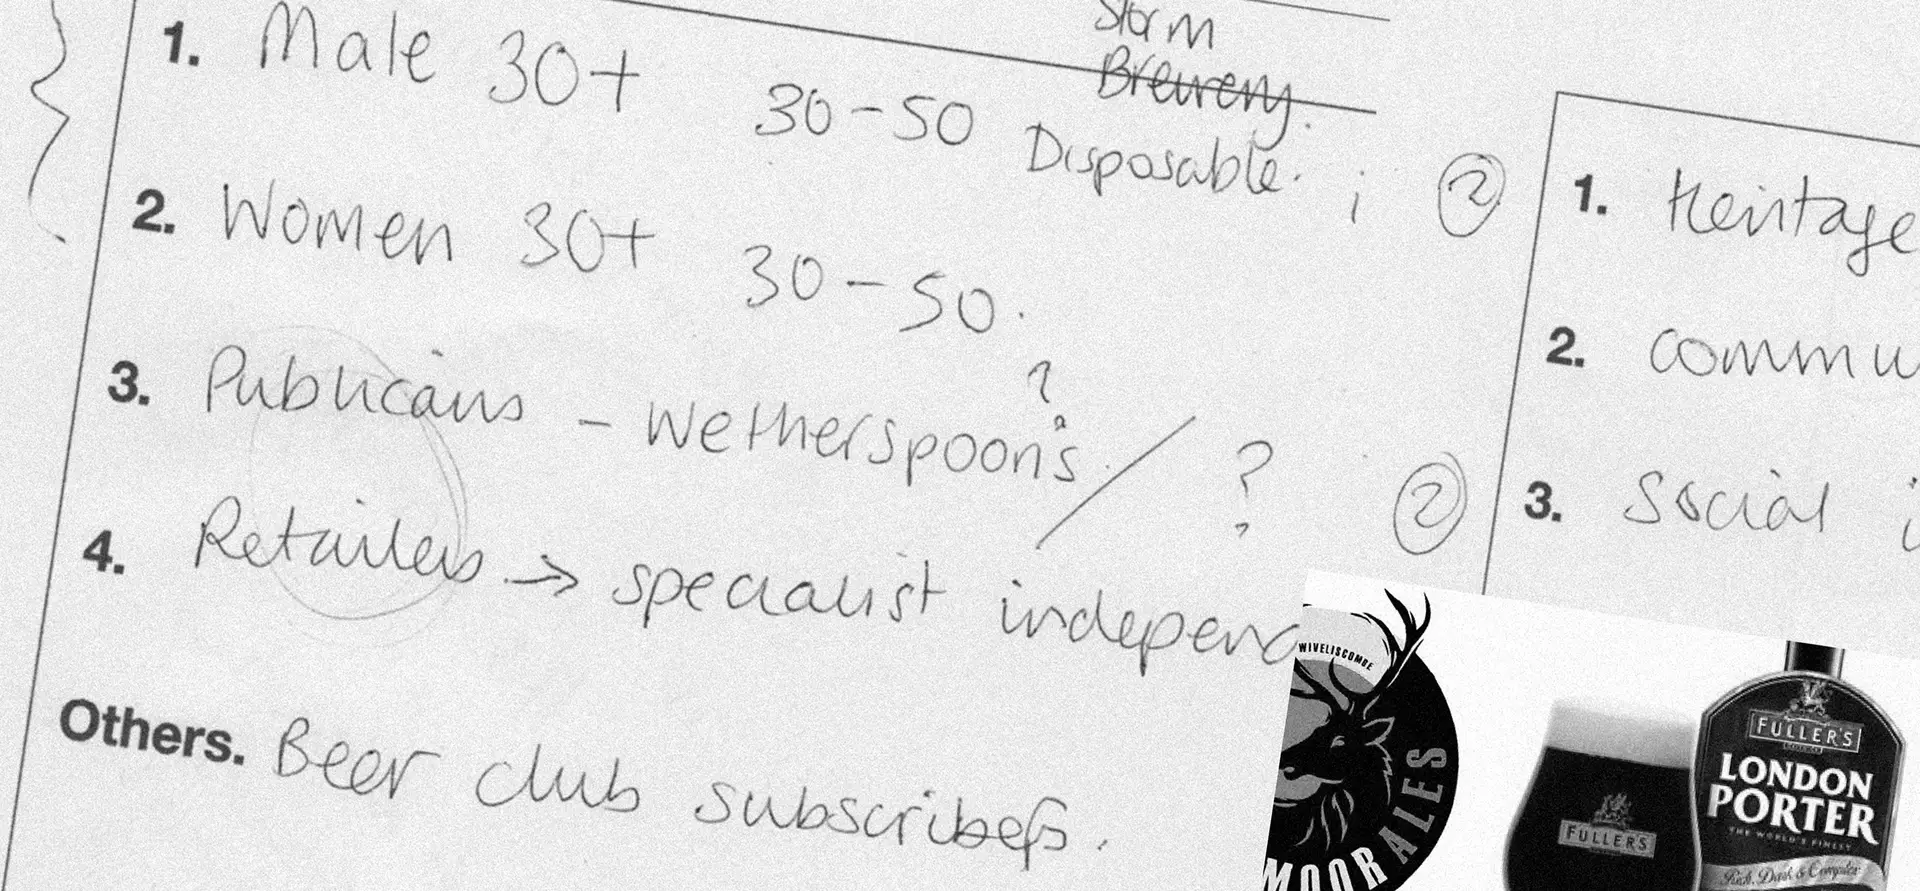 Storm
Brewery.
1. Male 30+ 30-50 Disposable. i ②
2. Women 30+ 30-50.
3. Publicans - Wetherspoon's ? / ? ②
4. Retailers → specialist independ
Others. Beer club subscribers.
1. Heritage
2. commu
3. Social i
WIVELISCOMBE
MOOR ALES
FULLER'S
FULLER'S
LONDON
PORTER
THE WORLD'S FINEST
Rich, Dark & Complex